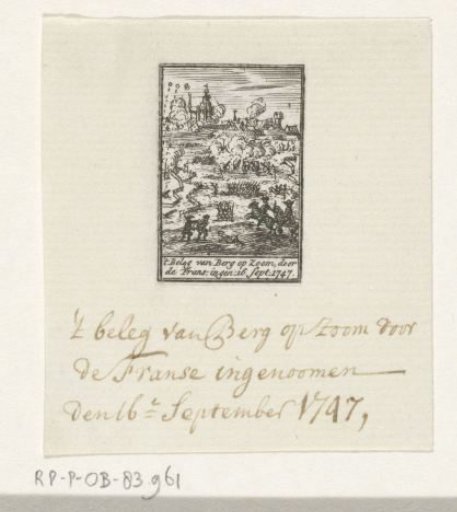 't Beleg van Berg op Zoom, door
de Frans: ingen: 16 Sept: 1747.
't beleg van Berg op Zoom door
de Franse ingenoomen
den 16e September 1747,
RP-P-OB-83.961